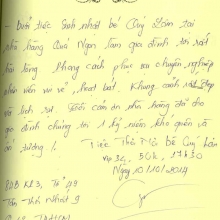 - Buổi tiệc Sinh nhật bé Quý Lâm tại
nhà hàng Quá Ngon làm gia đình tôi rất
hài lòng. Phong cách phục vụ chuyên nghiệp
nhân viên vui vẻ, hoạt bát. Khung cảnh rất đẹp
và lịch sự. Gởi cảm ơn nhà hàng đã cho
gia đình chúng tôi 1 kỷ niệm khó quên và
ấn tượng!. Tiệc Thôi Nôi Bé Quý Lâm
vip 3c, 30k, 17h30
Ngày 10/10/2014
KP3, Tổ 49
Tân Thới Nhất 9